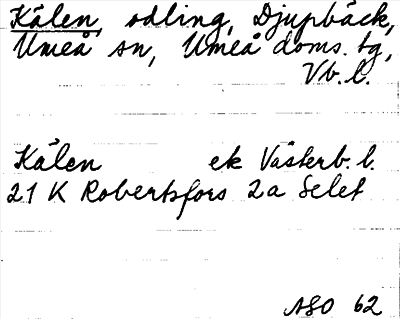 Kälen, odling, Djupbäck,
Umeå sn, Umeå doms. tg,
Vb. l.
Kälen ek Västerb. l.
21 K Robertsfors 2a Selet
ASO 62